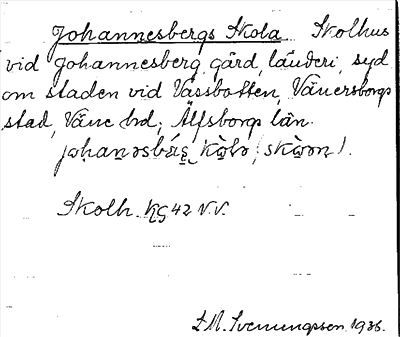 Johannesbergs Skola Skolhus
vid Johannesberg, gård, länderi, syd
om staden vid Vassbotten, Vänersborgs
stad, Väne hd, Älfsborgs län.
Skolh. KG 42 V.V.
S.M. Svenungsson 1936.